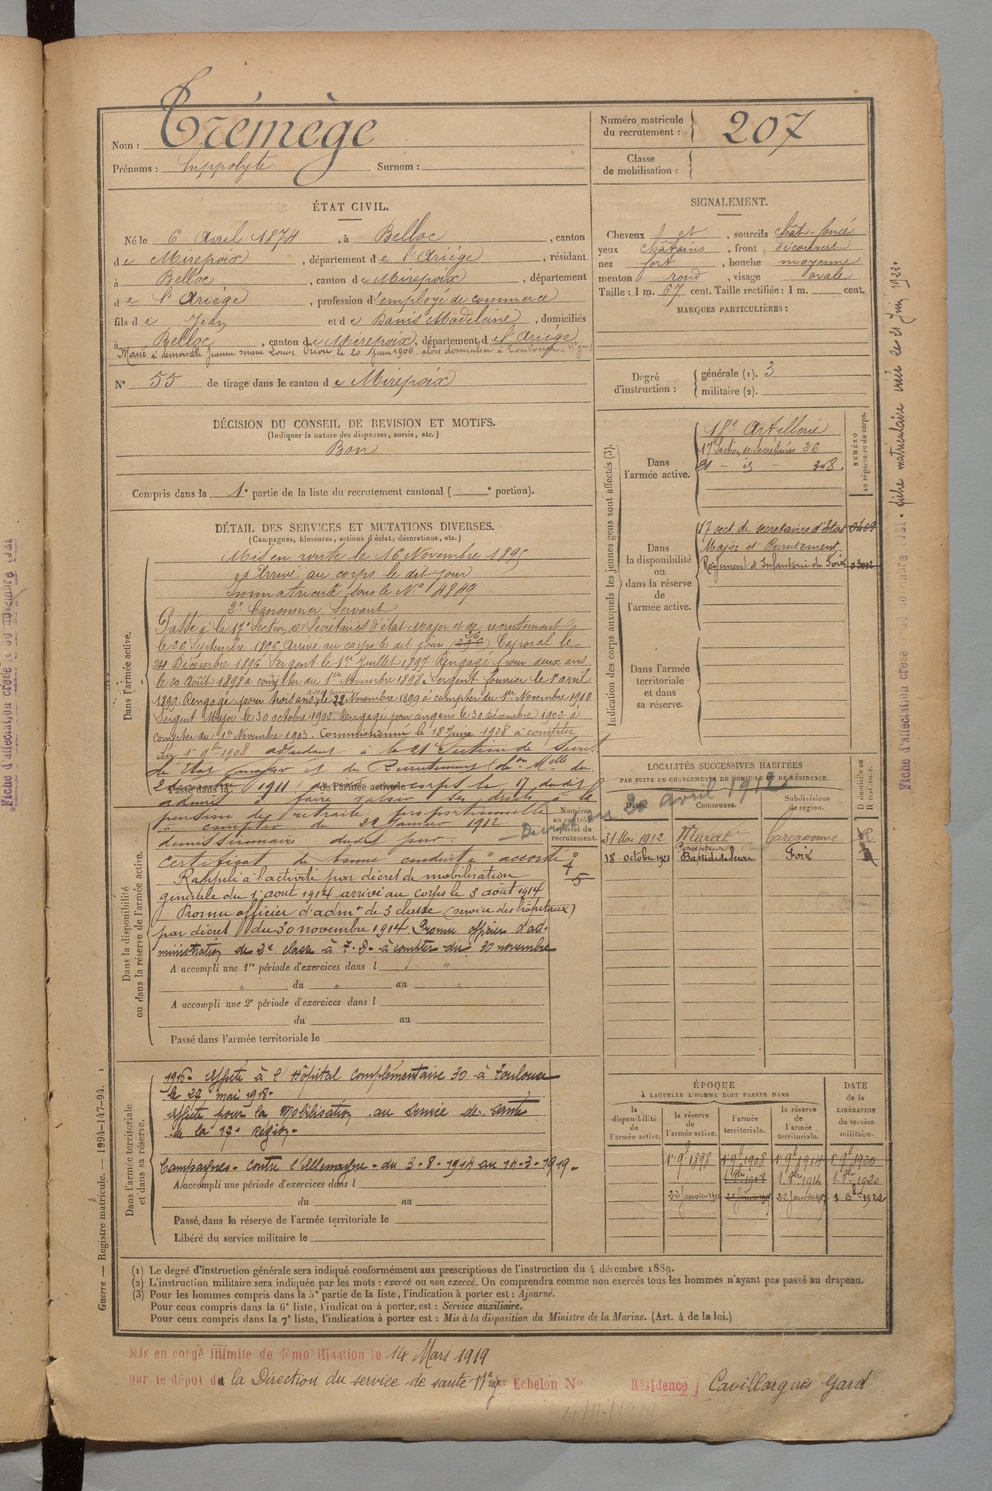 Nom : Trémège
Prénoms : Hippolyte Surnom :
Numéro matricule du recrutement : 207
Classe de mobilisation :
ÉTAT CIVIL.
Né le 6 Avril 1874, à Belloc, canton
de Mirepoix, département de l'Ariège, résidant
à Belloc, canton de Mirepoix, département
de l'Ariège, profession d'employé de commerce
fils de Jean et de Banis Madeleine, domiciliés
à Belloc, canton de Mirepoix, département de l'Ariège
Marié à demoiselle Jeanne Marie Louise le 20 Juin 1906
N° 55 de tirage dans le canton de Mirepoix
SIGNALEMENT.
Cheveux et, sourcils chât-foncé
yeux châtains, front découvert
nez fort, bouche moyenne
menton rond, visage ovale
Taille : 1 m. 67 cent. Taille rectifiée : 1 m. cent.
MARQUES PARTICULIÈRES :
Degré d'instruction : générale (1). 3
militaire (2).
DÉCISION DU CONSEIL DE REVISION ET MOTIFS.
(Indiquer la nature des dispenses, sursis, etc.)
Bon
Compris dans la 1e partie de la liste du recrutement cantonal ( e portion).
DÉTAIL DES SERVICES ET MUTATIONS DIVERSES.
(Campagnes, blessures, actions d'éclat, décorations, etc.)
Dans l'armée active.
Mis en route le 16 Novembre 1895
Arrivé au corps le dit jour
Immatriculé sous le N° 4849
2e Canonnier Servant
Passé à la 17e Section de Secrétaires d'état Major et de recrutement
le 26 Septembre 1896. Arrivé au corps le dit jour Caporal le
24 Décembre 1896 Sergent le 1er Juillet 1897 Rengagé pour deux ans
le 20 Août 1898 à compter du 1er Novembre 1898. Sergent fourrier le 8 avril
1899. Rengagé pour trois ans, le 22 Novembre 1899 à compter du 1er Novembre 1900
Sergent Major le 30 octobre 1902. Rengagé pour cinq ans le 30 décembre 1902 à
compter du 1er Novembre 1903. Commissionné le 18 Juin 1908 à compter
du 1er 9bre 1908 adjudant à la 21e Section de Secrét
de Etat major et du Recrutement
1911 corps le 17 du dit
Passé dans la de l'armée active le
admis à faire valoir ses droits à la
pension de retraite proportionnelle
à compter du 22 Janvier 1912
certificat de bonne conduite accordé
Dans la disponibilité ou dans la réserve de l'armée active.
Rappelé à l'activité par décret de mobilisation
générale du 1er août 1914 arrivé au corps le 3 août 1914
Promu officier d'admon de 3e classe (service des hôpitaux)
par décret du 30 novembre 1914 Promu officier d'ad-
ministration de 2e classe à T.D. à compter du 30 novembre
A accompli une 1re période d'exercices dans l
du au
A accompli une 2e période d'exercices dans l
du au
Passé dans l'armée territoriale le
Dans l'armée territoriale et dans sa réserve.
1916. Affecté à l'Hôpital complémentaire 30 à Toulouse
le 27 mai 1918.
Affecté pour la Mobilisation au service de santé
de la 17e région.
Campagnes. Contre l'Allemagne. du 3-8-1914 au 14-3-1919.
A accompli une période d'exercices dans l
du au
Passé, dans la réserve de l'armée territoriale le
Libéré du service militaire le
Indication des corps auxquels les jeunes gens sont affectés (3).
NUMÉRO au répertoire du corps.
Dans l'armée active.
18e Artillerie
17e Section de Secrétaires 26
21 - is - 308
Dans la disponibilité ou dans la réserve de l'armée active.
17 sect de secretaires d'Etat
Major et Recrutement
Régiment d'Infanterie de Foix
Dans l'armée territoriale et dans sa réserve.
Numéros au contrôle spécial du recrutement.
LOCALITÉS SUCCESSIVES HABITÉES
PAR SUITE DE CHANGEMENTS DE DOMICILE OU DE RÉSIDENCE.
Communes. Subdivisions de région. D domicile ou R résidence.
31 Mai 1912 Carcassonne R
Percepteur
18 octobre 1921 Foix
20 avril 1912
ÉPOQUE
À LAQUELLE L'HOMME DOIT PASSER DANS
la disponibilité de l'armée active. la réserve de l'armée active. l'armée territoriale. la réserve de l'armée territoriale.
DATE de la LIBÉRATION du service militaire.
1er 9bre 1898 1er 9bre 1908 1er 9bre 1914 1er 9bre 1920
1er 8bre 1908 1er 8bre 1914 1er 8bre 1920
22 Janvier 1912
(1) Le degré d'instruction générale sera indiqué conformément aux prescriptions de l'instruction du 4 décembre 1889.
(2) L'instruction militaire sera indiquée par les mots : exercé ou non exercé. On comprendra comme non exercés tous les hommes n'ayant pas passé au drapeau.
(3) Pour les hommes compris dans la 5e partie de la liste, l'indication à porter est : Ajourné.
Pour ceux compris dans la 6e liste, l'indication à porter, est : Service auxiliaire.
Pour ceux compris dans la 7e liste, l'indication à porter est : Mis à la disposition du Ministre de la Marine. (Art. 4 de la loi.)
Guerre — Registre matricule. — 1994-147-94.
Mis en congé illimité de démobilisation le 14 Mars 1919
par le dépôt du la Direction du service de santé 17e rég Echelon N° Résidence Cavillargues Gard
Fiche d'affectation créée le 30 novembre 1921. fiche matriculaire créée le 21 Juin 1922.